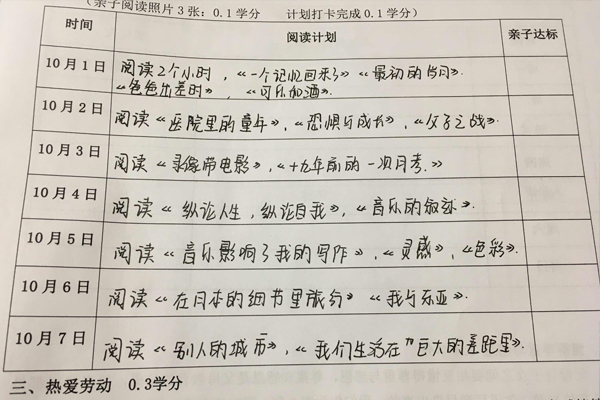 （亲子阅读照片3张：0.1学分 计划打卡完成0.1学分）
时间 阅读计划 亲子达标
10月1日 阅读2个小时，《一个记忆回来了》《最初的岁月》.
《爸爸出差时》，《可乐加酒》.
10月2日 阅读《医院里的童年》，《恐惧与成长》，《父子之战》.
10月3日 阅读《录像带电影》，《十九年前的一次月考.》
10月4日 阅读《纵论人生，纵论自我》，《音乐的叙述》.
10月5日 阅读《音乐影响了我的写作》，《灵感》，《色彩》.
10月6日 阅读《在日本的细节里旅行》《我与东亚》.
10月7日 阅读《别人的城市》，《我们生活在"巨大的差距里》.
三、热爱劳动 0.3学分